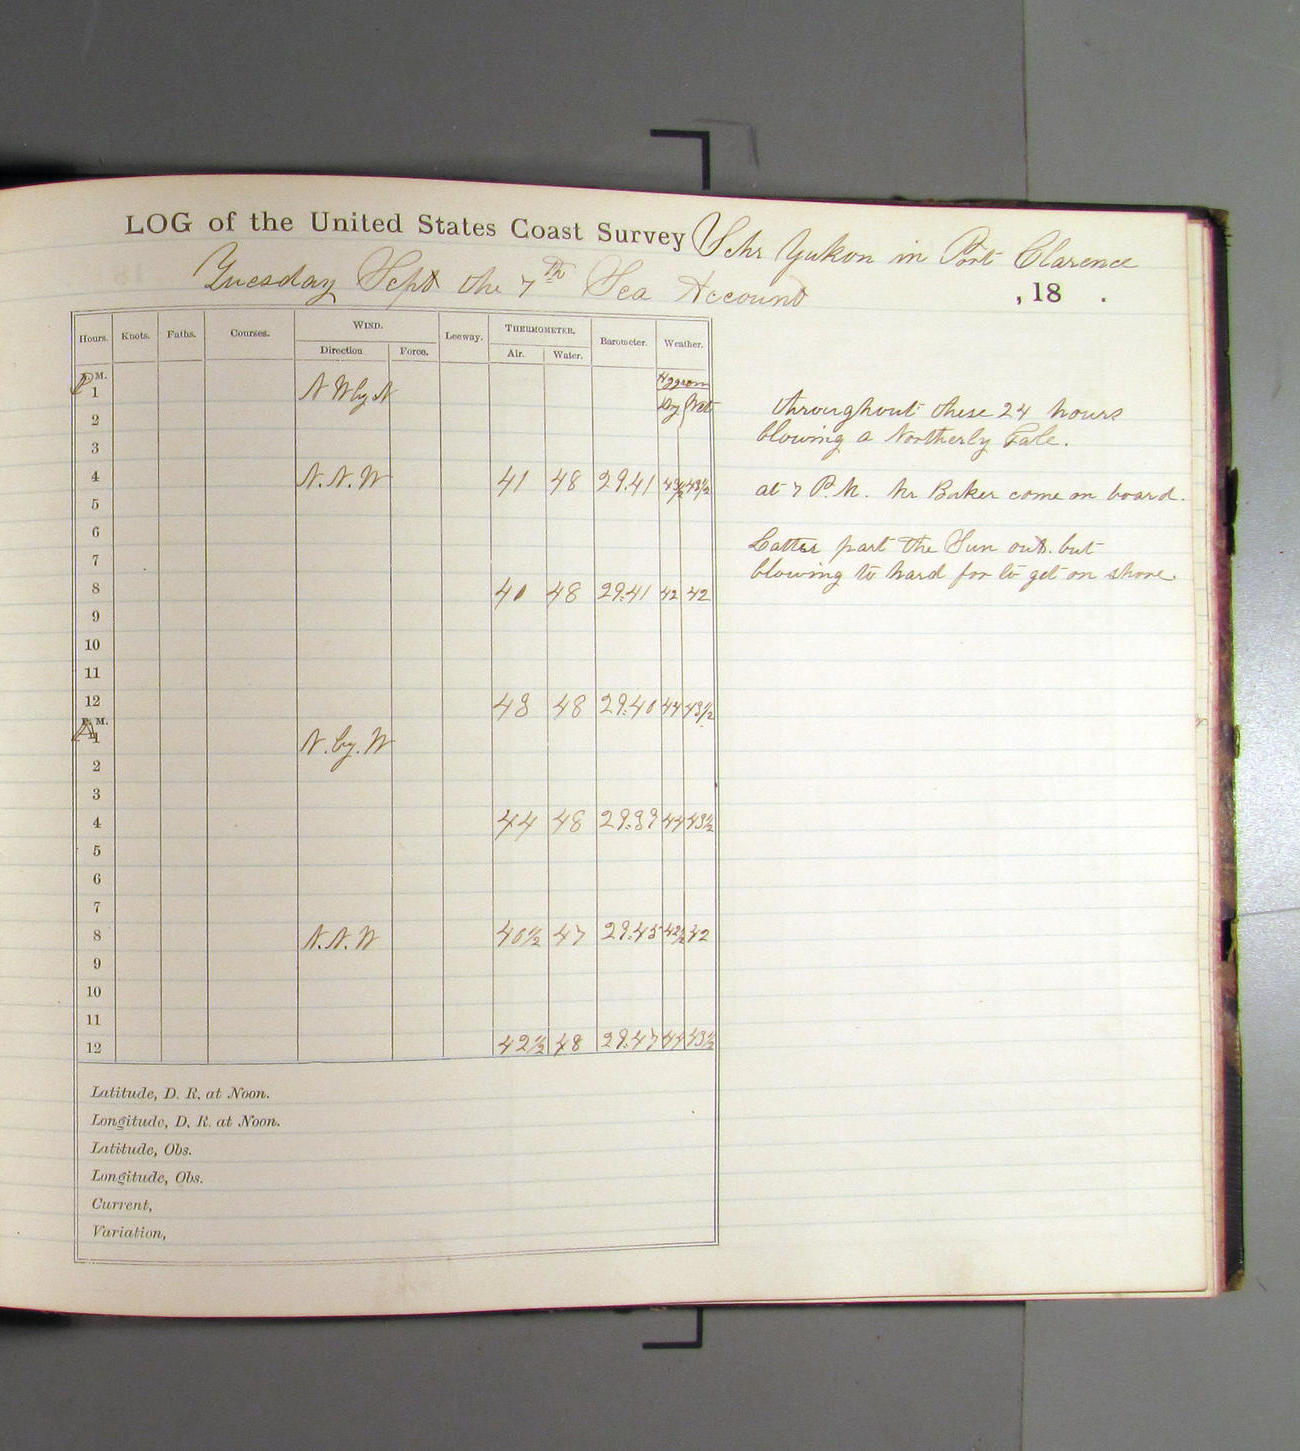 LOG of the United States Coast Survey Schr Yukon in Port Clarence
Tuesday Sept the 7th Sea Account , 18 .
Hours. Knots. Faths. Courses. WIND. Leeway. THERMOMETER. Barometer. Weather.
Direction Force. Air. Water.
P M. Hygrom
1 N W by N Dry Wet
2
3
4 N. N. W 41 48 29.41 43½ 43½
5
6
7
8 40 48 29.41 42 42
9
10
11
12 48 48 29.40 44 43½
A M.
1 N. by. W
2
3
4 44 48 29.39 44 43½
5
6
7
8 N. N. W 40½ 47 29.45 42½ 42
9
10
11
12 42½ 48 29.47 44 43½
Latitude, D. R. at Noon.
Longitude, D. R. at Noon.
Latitude, Obs.
Longitude, Obs.
Current,
Variation,
throughout these 24 hours
blowing a Northerly Gale.
at 7 P.M. Mr Baker come on board.
Latter part the Sun out. but
blowing to hard for to get on shore.